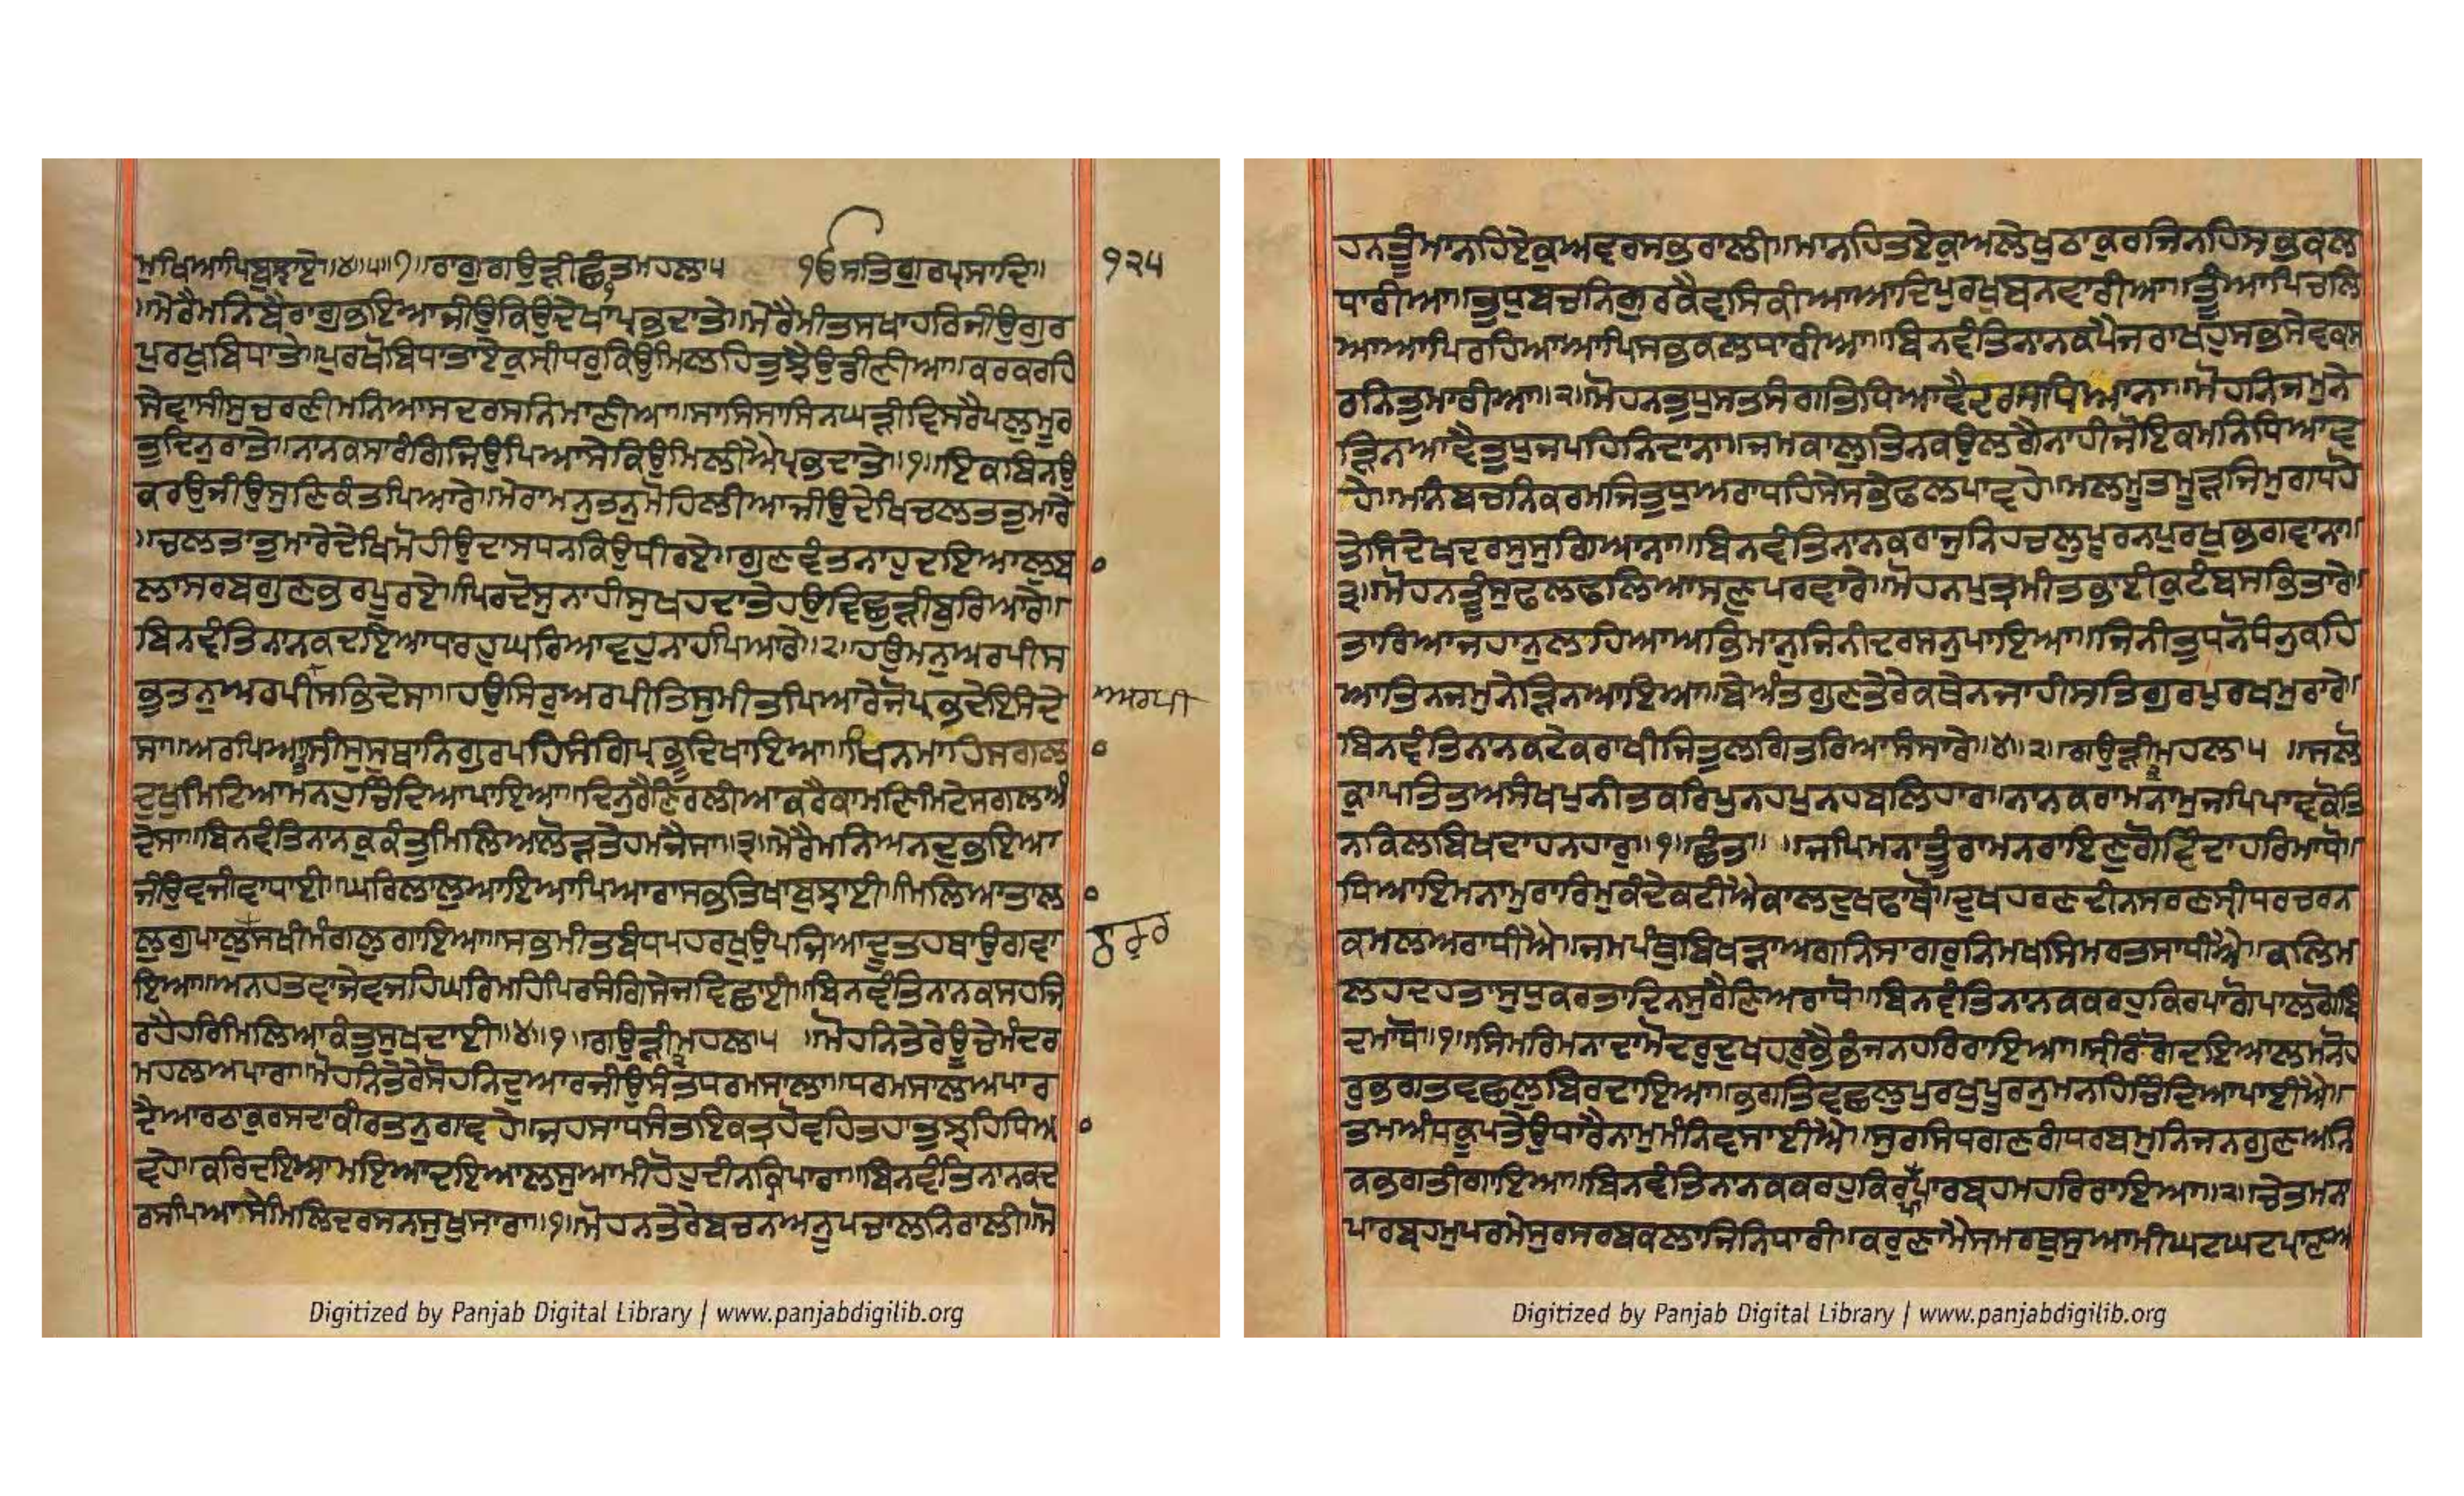 ਮੁਖਿਆਪਿਬੁਝਾਏ॥੪॥੫॥੭॥ਰਾਗੁਗਉੜੀਛੰਤਮਹਲਾ੫ ੴਸਤਿਗੁਰਪ੍ਰਸਾਦਿ॥ ੧੨੫
॥ਮੇਰੈਮਨਿਬੈਰਾਗੁਭਇਆਜੀਉਕਿਉਦੇਖਾਪ੍ਰਭਦਾਤੇ॥ਮੇਰੈਮੀਤਸਖਾਹਰਿਜੀਉਗੁਰ
ਪੁਰਖੁਬਿਧਾਤੇ॥ਪੁਰਖੋਬਿਧਾਤਾਏਕੁਸ੍ਰੀਧਰੁਕਿਉਮਿਲਹਿਤੁਝੈਉਡੀਣੀਆ॥ਕਰਕਰਹਿ
ਸੇਵਾਸੀਸੁਚਰਣੀਮਨਿਆਸਦਰਸਨਿਮਾਣੀਆ॥ਸਾਸਿਸਾਸਿਨਘੜੀਵਿਸਰੈਪਲੁਮੂਰ
ਤੁਦਿਨੁਰਾਤੇ॥ਨਾਨਕਸਾਰੰਗਿਜਿਉਪਿਆਸੇਕਿਉਮਿਲੀਐਪ੍ਰਭਦਾਤੇ॥੧॥ਇਕਬਿਨਉ
ਕਰਉਜੀਉਸੁਣਿਕੰਤਪਿਆਰੇ॥ਮੇਰਾਮਨੁਤਨੁਮੋਹਿਲੀਆਜੀਉਦੇਖਿਚਲਤਤੁਮਾਰੇ
॥ਚਲਤਾਤੁਮਾਰੇਦੇਖਿਮੋਹੀਉਦਾਸਧਨਕਿਉਧੀਰਏ॥ਗੁਣਵੰਤਨਾਹੁਦਇਆਲੁਬ
ਲਾਸਰਬਗੁਣਭਰਪੂਰਏ॥ਪਿਰਦੋਸੁਨਾਹੀਸੁਖਹਦਾਤੇਹਉਵਿਛੁੜੀਬੁਰਿਆਰੇ॥
ਬਿਨਵੰਤਿਨਾਨਕਦਇਆਧਰਹੁਘਰਿਆਵਹੁਨਾਹਪਿਆਰੇ॥੨॥ਹਉਮਨੁਅਰਪੀਸ
ਭੁਤਨੁਅਰਪੀਸਭਿਦੇਸਾ॥ਹਉਸਿਰੁਅਰਪੀਤਿਸੁਮੀਤਪਿਆਰੇਜੋਪ੍ਰਭਦੇਇਸੰਦੇ ਅਰਪੀ
ਸਾ॥ਅਰਪਿਆਸੀਸੁਸਥਾਨਿਗੁਰਪਹਿਸੰਗਿਪ੍ਰਭੂਦਿਖਾਇਆ॥ਖਿਨਮਾਹਿਸਗਲ
ਦੂਖੁਮਿਟਿਆਮਨਹੁਚਿੰਦਿਆਪਾਇਆ॥ਦਿਨੁਰੈਣਿਰਲੀਆਕਰੈਕਾਮਣਿਮਿਟੇਸਗਲਅੰ
ਦੇਸਾ॥ਬਿਨਵੰਤਿਨਾਨਕੁਕੰਤੁਮਿਲਿਆਲੋੜਤੇਹਮਜੈਸਾ॥੩॥ਮੇਰੈਮਨਿਅਨਦੁਭਇਆ
ਜੀਉਵਜੀਵਾਧਾਈ॥ਘਰਿਲਾਲੁਆਇਆਪਿਆਰਾਸਭਤਿਖਾਬੁਝਾਈ॥ਮਿਲਿਆਤਾਲ
ਲੁਗੁਪਾਲੁਸਖੀਮੰਗਲੁਗਾਇਆ॥ਸਭਮੀਤਬੰਧਪਹਰਖੁਉਪਜਿਆਦੂਤਹਥਾਉਗਵਾ ਠਾਕੁਰ
ਇਆ॥ਅਨਹਤਵਾਜੇਵਜਹਿਘਰਿਮਹਿਪਿਰਸੰਗਿਸੇਜਵਿਛਾਈ॥ਬਿਨਵੰਤਿਨਾਨਕਸਹਜਿ
ਰਹੈਹਰਿਮਿਲਿਆਕੰਤੁਸੁਖਦਾਈ॥੪॥੧॥ਗਉੜੀਮਹਲਾ੫ ॥ਮੋਹਨਿਤੇਰੇਊਚੇਮੰਦਰ
ਮਹਲਅਪਾਰਾ॥ਮੋਹਨਿਤੇਰੇਸੋਹਨਿਦੁਆਰਜੀਉਸੰਤਧਰਮਸਾਲਾ॥ਧਰਮਸਾਲਅਪਾਰ
ਦੈਆਰਠਾਕੁਰਸਦਾਕੀਰਤਨੁਗਾਵਹੇ॥ਜਹਸਾਧਸੰਤਇਕਤ੍ਰਹੋਵਹਿਤਹਾਤੁਝਹਿਧਿਆ
ਵਹੇ॥ਕਰਿਦਇਆਮਇਆਦਇਆਲਸੁਆਮੀਹੋਹੁਦੀਨਕ੍ਰਿਪਾਰਾ॥ਬਿਨਵੰਤਿਨਾਨਕਦ
ਰਸਪਿਆਸੇਮਿਲਿਦਰਸਨਸੁਖੁਸਾਰਾ॥੧॥ਮੋਹਨਤੇਰੇਬਚਨਅਨੂਪਚਾਲਨਿਰਾਲੀ॥ਮੋ
ਹਨਤੂੰਮਾਨਹਿਏਕੁਅਵਰਸਭਰਾਲੀ॥ਮਾਨਹਿਤਏਕੁਅਲੇਖੁਠਾਕੁਰਜਿਨਹਿਸਭਕਲ
ਧਾਰੀਆ॥ਤੁਧੁਬਚਨਿਗੁਰਕੈਵਸਿਕੀਆਆਦਿਪੁਰਖੁਬਨਵਾਰੀਆ॥ਤੂੰਆਪਿਚਲਿ
ਆਆਪਿਰਹਿਆਆਪਿਸਭਕਲਧਾਰੀਆ॥ਬਿਨਵੰਤਿਨਾਨਕਪੈਜਰਾਖਹੁਸਭਸੇਵਕਸ
ਰਨਿਤੁਮਾਰੀਆ॥੨॥ਮੋਹਨਤੁਧੁਸਤਸੰਗਤਿਧਿਆਵੈਦਰਸਧਿਆਨਾ॥ਮੋਹਨਿਜਮੁਨੇ
ੜਿਨਆਵੈਤੁਧੁਜਪਹਿਨਿਦਾਨਾ॥ਜਮਕਾਲੁਤਿਨਕਉਲਗੈਨਾਹੀਜੋਇਕਮਨਿਧਿਆਵ
ਹੇ॥ਮਨਿਬਚਨਿਕਰਮਜਿਤੁਧੁਅਰਾਧਹਿਸੇਸਭੇਫਲਪਾਵਹੇ॥ਮਲਮੂਤਮੂੜਜਿਮੁਗਧਹੋ
ਤੇਸਿਦੇਖਦਰਸੁਸੁਗਿਆਨਾ॥ਬਿਨਵੰਤਿਨਾਨਕਰਾਜੁਨਿਹਚਲੁਪੂਰਨਪੁਰਖੁਭਗਵਾਨਾ॥
੩॥ਮੋਹਨਤੂੰਸੁਫਲਫਲਿਆਸਣੁਪਰਵਾਰੇ॥ਮੋਹਨਪੁਤ੍ਰਮੀਤਭਾਈਕੁਟੰਬਸਭਿਤਾਰੇ॥
ਤਾਰਿਆਜਹਾਨੁਲਹਿਆਅਭਿਮਾਨੁਜਿਨੀਦਰਸਨੁਪਾਇਆ॥ਜਿਨੀਤੁਧਨੋਧੰਨੁਕਹਿ
ਆਤਿਨਜਮੁਨੇੜਿਨਆਇਆ॥ਬੇਅੰਤਗੁਣਤੇਰੇਕਥੇਨਜਾਹੀਸਤਿਗੁਰਪੁਰਖਮੁਰਾਰੇ॥
ਬਿਨਵੰਤਿਨਾਨਕਟੇਕਰਾਖੀਜਿਤੁਲਗਿਤਰਿਆਸੰਸਾਰੇ॥੪॥੨॥ਗਉੜੀਮਹਲਾ੫ ॥ਸਲੋ
ਕੁ॥ਪਤਿਤਅਸੰਖਪੁਨੀਤਕਰਿਪੁਨਹਪੁਨਹਬਲਿਹਾਰ॥ਨਾਨਕਰਾਮਨਾਮੁਜਪਿਪਾਵਕੋਤਿ
ਨਕਿਲਬਿਖਦਾਹਨਹਾਰੁ॥੧॥ਛੰਤ॥ ॥ਜਪਿਮਨਾਤੂੰਰਾਮਨਰਾਇਣੁਗੋਵਿੰਦਾਹਰਿਮਾਧੋ॥
ਧਿਆਇਮਨਾਮੁਰਾਰਿਮੁਕੰਦੇਕਟੀਐਕਾਲਦੁਖਫਾਧੋ॥ਦੁਖਹਰਣਦੀਨਸਰਣਸ੍ਰੀਧਰਚਰਨ
ਕਮਲਅਰਾਧੀਐ॥ਜਮਪੰਥੁਬਿਖੜਾਅਗਨਿਸਾਗਰੁਨਿਮਖਸਿਮਰਤਸਾਧੀਐ॥ਕਲਿਮ
ਲਹਦਹਤਾਸੁਧੁਕਰਤਾਦਿਨਸੁਰੈਣਿਅਰਾਧੋ॥ਬਿਨਵੰਤਿਨਾਨਕਕਰਹੁਕਿਰਪਾਗੋਪਾਲਗੋਬਿੰ
ਦਮਾਧੋ॥੧॥ਸਿਮਰਿਮਨਾਦਾਮੋਦਰੁਦੁਖਹਰੁਭੈਭੰਜਨਹਰਿਰਾਇਆ॥ਸ੍ਰੀਰੰਗੋਦਇਆਲਮਨੋਹ
ਰੁਭਗਤਵਛਲੁਬਿਰਦਾਇਆ॥ਭਗਤਿਵਛਲੁਪੁਰਖੁਪੂਰਨੁਮਨਹਿਚਿੰਦਿਆਪਾਈਐ॥
ਤਮਅੰਧਕੂਪਤੇਉਧਾਰੈਨਾਮੁਮੰਨਿਵਸਾਈਐ॥ਸੁਰਸਿਧਗਣਗੰਧਰਬਮੁਨਿਜਨਗੁਣਅਨਿ
ਕਭਗਤੀਗਾਇਆ॥ਬਿਨਵੰਤਿਨਾਨਕਕਰਹੁਕਿਰਪਾਪਾਰਬ੍ਰਹਮਹਰਿਰਾਇਆ॥੨॥ਚੇਤਮਨਾ
ਪਾਰਬ੍ਰਹਮੁਪਰਮੇਸੁਰਸਰਬਕਲਾਜਿਨਿਧਾਰੀ॥ਕਰੁਣਾਮੈਸਮਰਥੁਸੁਆਮੀਘਟਘਟਪ੍ਰਾਣਅ
Digitized by Panjab Digital Library | www.panjabdigilib.org
Digitized by Panjab Digital Library | www.panjabdigilib.org